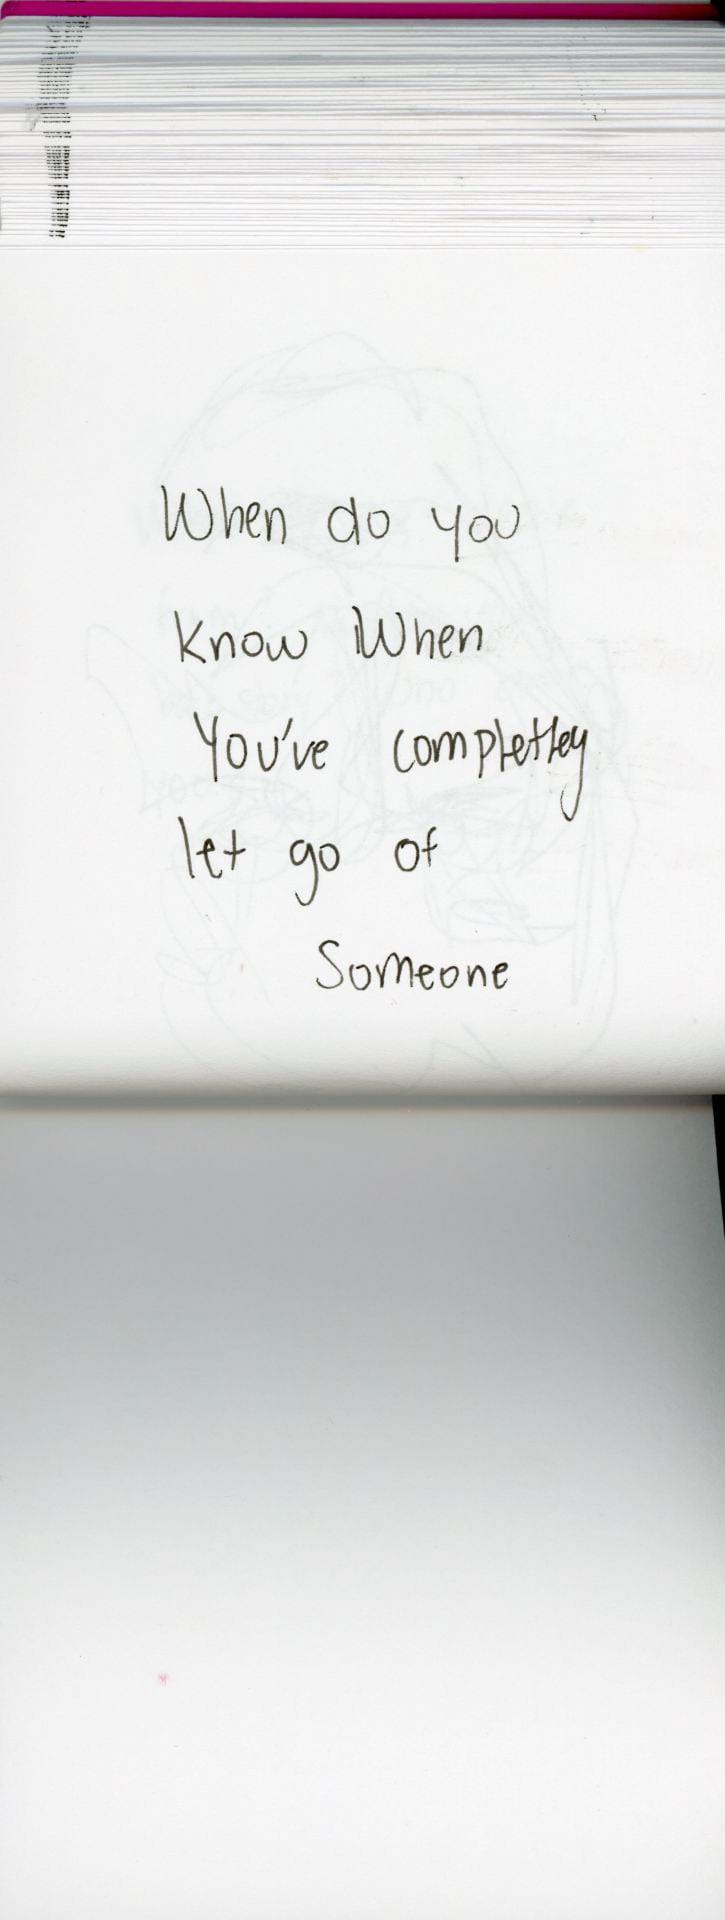 When do you
know When
You've completley
let go of
Someone